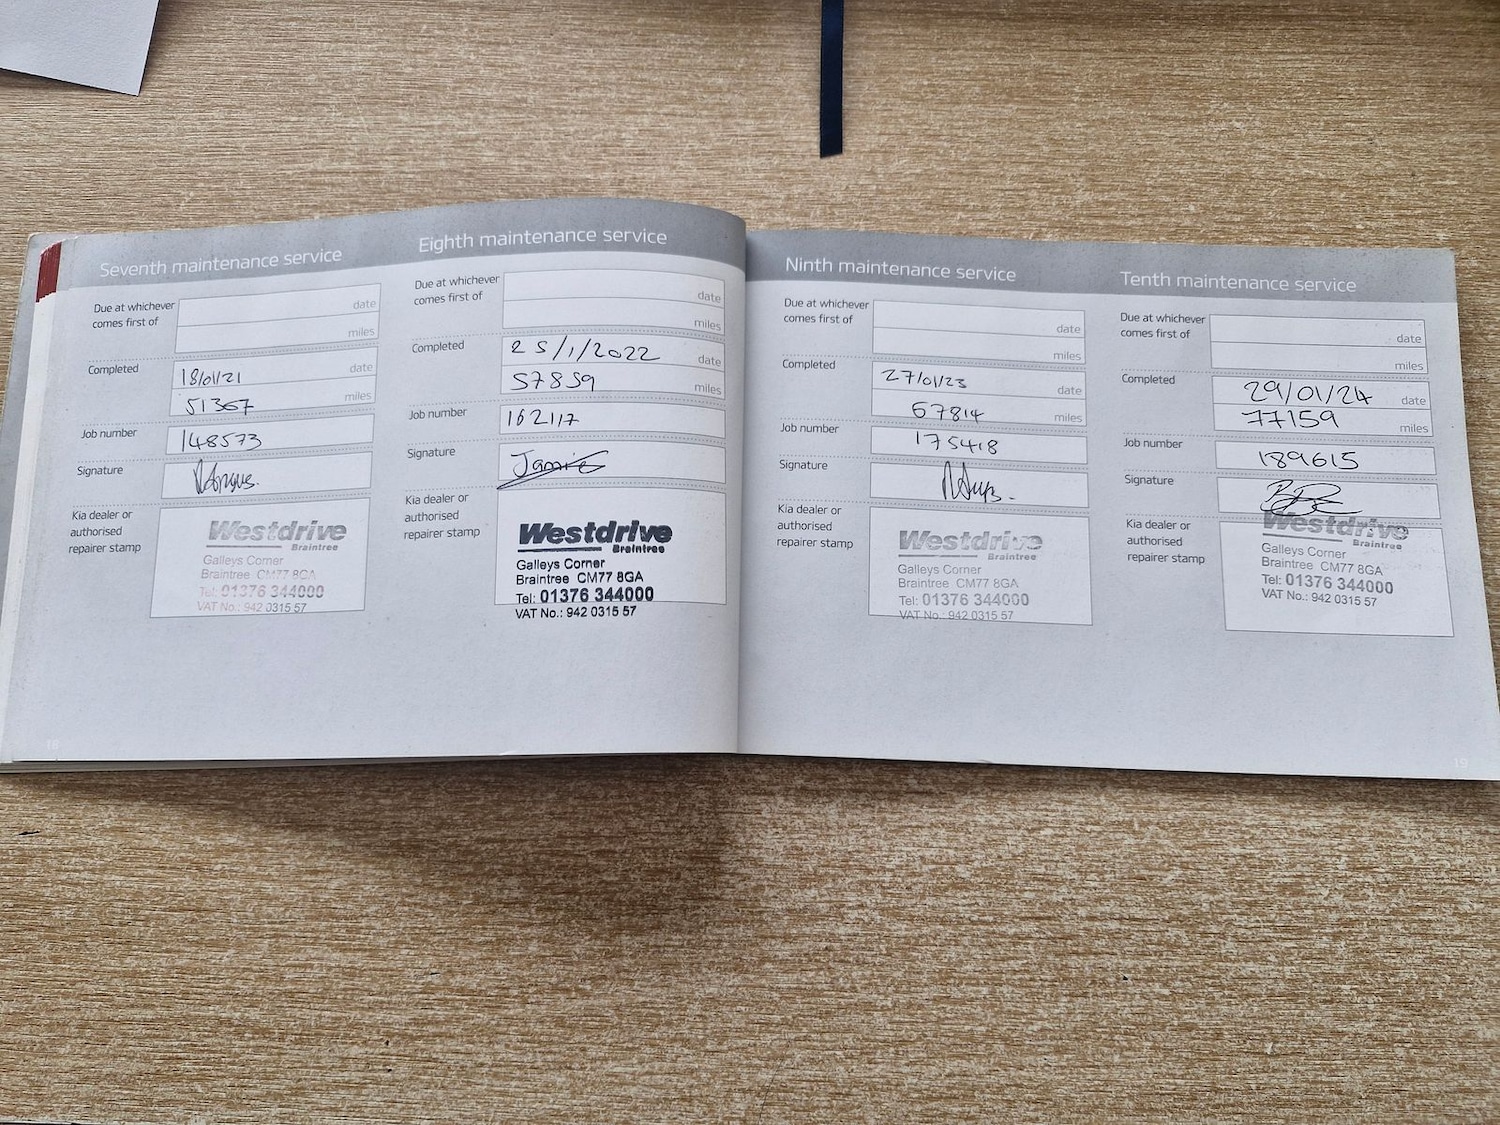 Seventh maintenance service
Due at whichever
comes first of
date
miles
Completed
18/01/21 date
51367 miles
Job number
148573
Signature
Kia dealer or
authorised
repairer stamp
Westdrive
Braintree
Galleys Corner
Braintree CM77 8GA
Tel: 01376 344000
VAT No.: 942 0315 57
Eighth maintenance service
Due at whichever
comes first of
date
miles
Completed
25/1/2022 date
57859 miles
Job number
162117
Signature
Jamie
Kia dealer or
authorised
repairer stamp
Westdrive
Braintree
Galleys Corner
Braintree CM77 8GA
Tel: 01376 344000
VAT No.: 942 0315 57
Ninth maintenance service
Due at whichever
comes first of
date
miles
Completed
27/01/23 date
67814 miles
Job number
175418
Signature
Kia dealer or
authorised
repairer stamp
Westdrive
Braintree
Galleys Corner
Braintree CM77 8GA
Tel: 01376 344000
VAT No.: 942 0315 57
Tenth maintenance service
Due at whichever
comes first of
date
miles
Completed
29/01/24 date
77159 miles
Job number
189615
Signature
Kia dealer or
authorised
repairer stamp
Westdrive
Braintree
Galleys Corner
Braintree CM77 8GA
Tel: 01376 344000
VAT No.: 942 0315 57
19